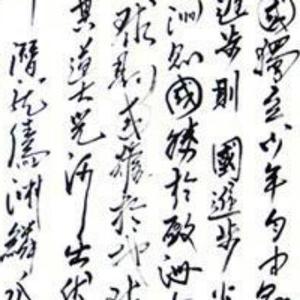 國獨立少年自由則
進步則國進步少
洲則國勝於歐洲
球則國雄於地球
其道大光河出伏
潛龍騰淵鱗爪